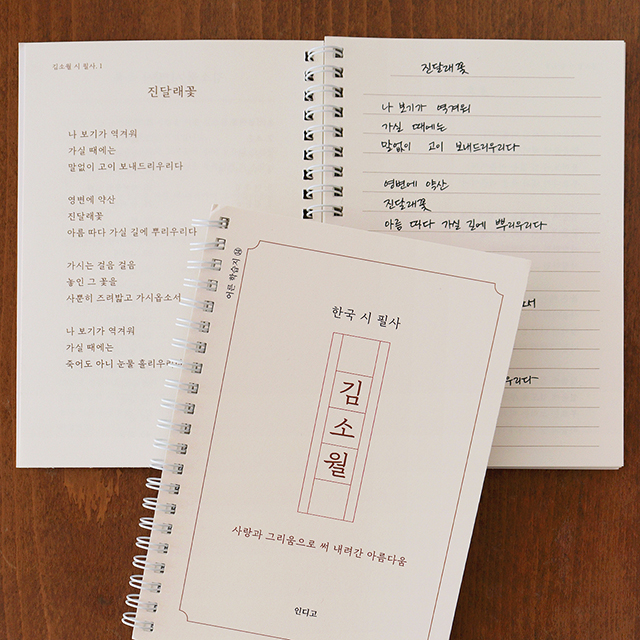 김소월 시 필사. 1
진달래꽃
나 보기가 역겨워
가실 때에는
말없이 고이 보내드리우리다
영변에 약산
진달래꽃
아름 따다 가실 길에 뿌리우리다
가시는 걸음 걸음
놓인 그 꽃을
사뿐히 즈려밟고 가시옵소서
나 보기가 역겨워
가실 때에는
죽어도 아니 눈물 흘리우리
진달래꽃
나 보기가 역겨워
가실 때에는
말없이 고이 보내드리우리다
영변에 약산
진달래꽃
아름 따다 가실 길에 뿌리우리다
소서
우리다
어른 학습지 14
한국 시 필사
김
소
월
사랑과 그리움으로 써 내려간 아름다움
인디고